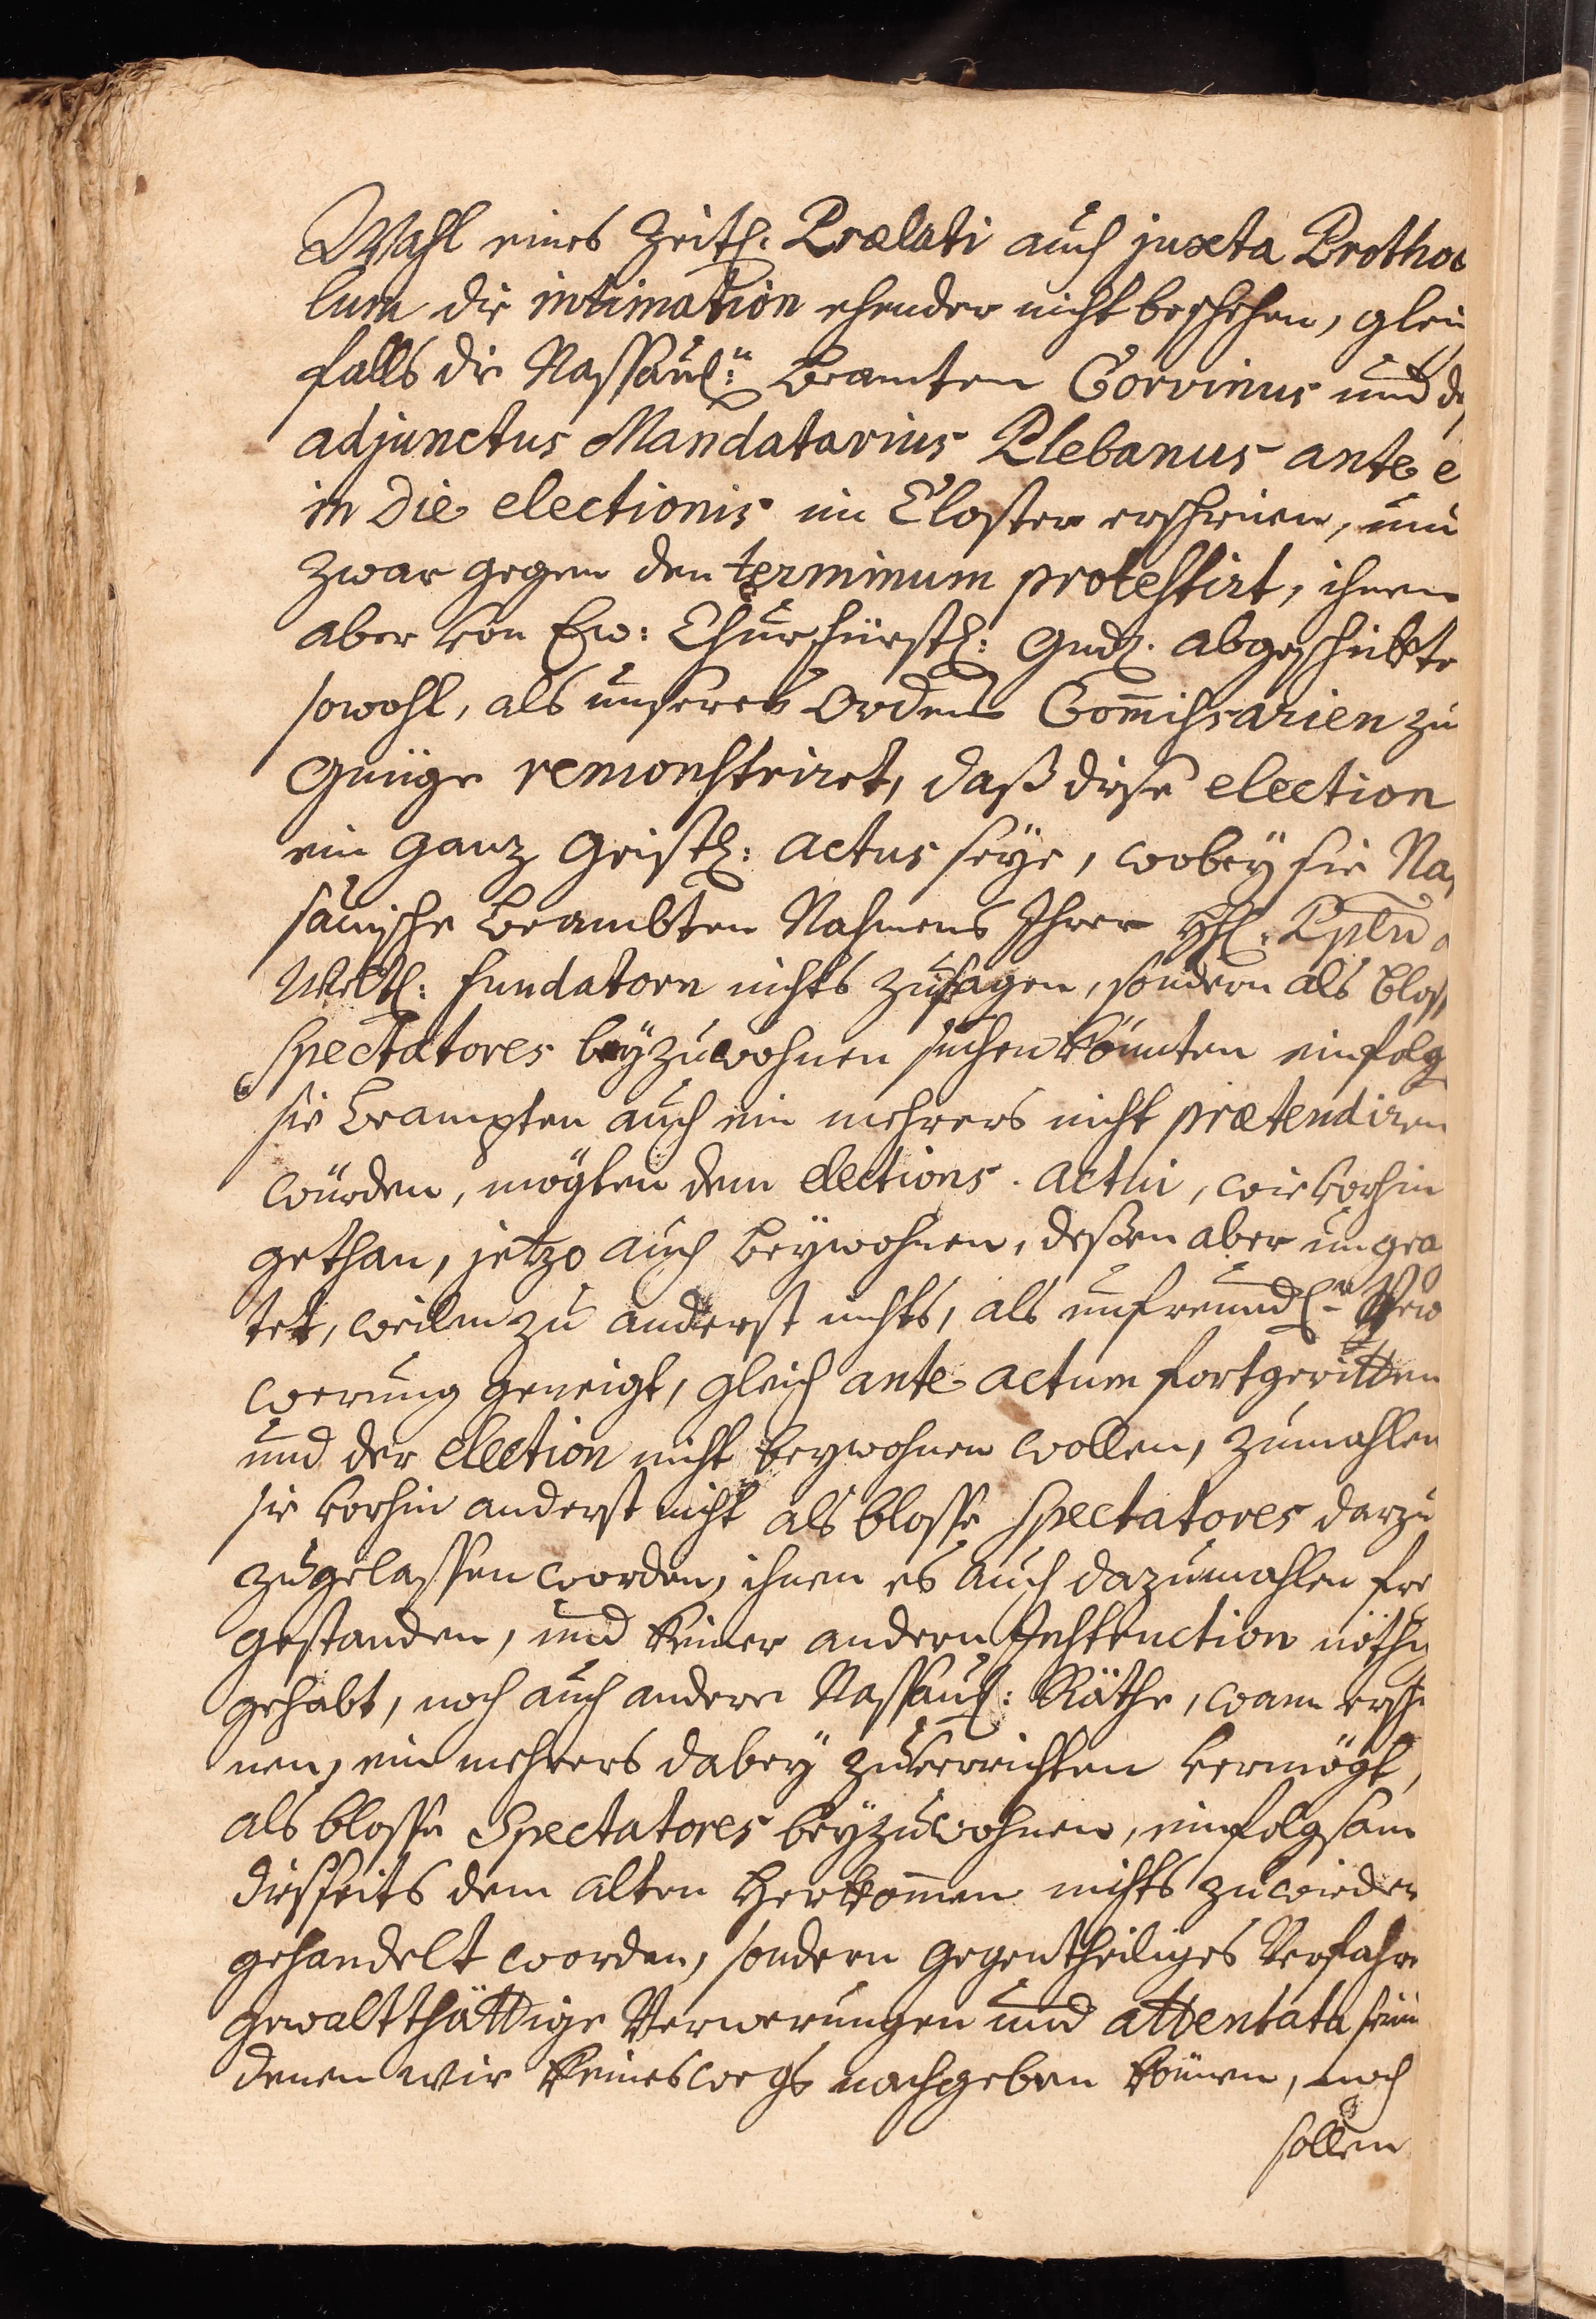 Wahl eines Zeitl: Prælati auch juxta Prothoc
lum die intimation ehender nicht beschehen, glei
falls die Nassauln: Beamten Corvinus und d
adjunctus Mandatarius Plebanus ante e
in die electionis im Closter erschienen, und
zwar gegen den terminum protestirt, ihnen
aber von Ew: Churfürstl: Gndl. abgeschickte
sowohl, als unseres Ordens Com̄issarien zu
Gnüge remonstriret, daß diese election
ein ganz Geistl: actus seye, wobey sie Nas
sauische Beambten Nahmens Ihrer
Weltl: fundatorn nichts zusagen, sondern als blos
Spectatores beyzuwohnen suchen könnten einfolg
sie Beampten auch ein mehrers nicht prætendiren
würden, mögten dem elections. actui, wie vorhin
gethan, jetzo auch beywohnen, deßen aber ungea
tet, weilen zu anderst nichts, als unfreundln
werung geneigt, gleich ante actum fortgeritten
und der election nicht beywohnen wollen, zumahlen
sie vorhin anderst nicht als blosse Spectatores darzu
zugelassen worden, ihnen es auch dazumahlen fre
gestanden, und keiner andern Instruction nöthi
gehabt, noch auch andere Nassaul: Räthe, wann ersche
nen, ein mehrers dabey zuverrichten vermögt,
als blosse Spectatores beyzuwohnen, einfolgsam
disseits dem alten Herkom̄en nichts zuwieder
gehandelt worden, sondern gegentheiliges Verfahre
gewaltthättige Verwerungen und attentata sein
denen wir keineswegs nachgeben können, noch
sollen